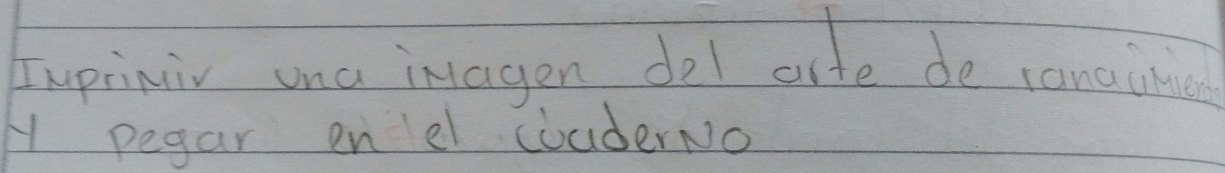 Imprimir una imagen del arte de ranacimiento
y pegar en el cuaderno